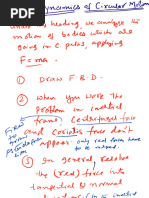 Dynamics of Circular Motion
under this heading, we analyse the
motion of bodies which are
going in c. paths, applying
F = ma.
① DRAW F.B.D.
② When you write the
problem in inertial
frame centrifugal force
and coriolis force don't
appear
only real forces have
to be
③ In general, resolve
the (real) force into
tangential & normal